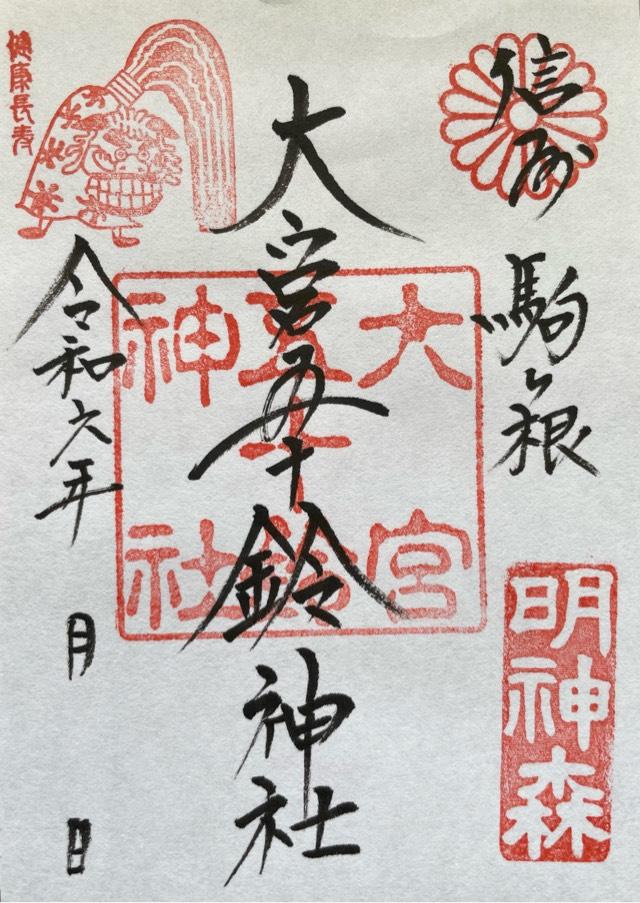 信州
駒ヶ根
明神森
大宮五十鈴神社
大宮
五十鈴
神社
健康長寿
令和六年
月
日